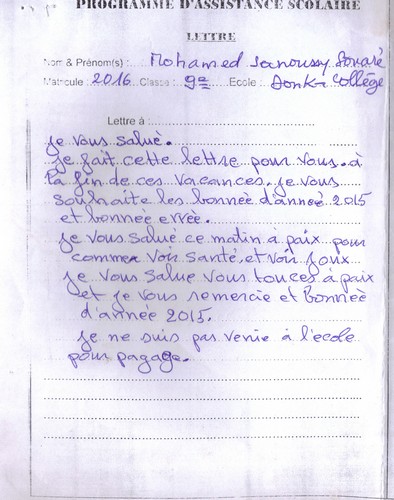 PROGRAMME D'ASSISTANCE SCOLAIRE
LETTRE
Nom & Prénom(s) : Mohamed Janoussy Souaré
Matricule : 2016 Classe : 9e Ecole : Donka Collège
Lettre à :
je vous salué.
je fait cette lettre pour vous. à
la fin de ces vacances. je vous
souhaite les bonnée d'année 2015
et bonnée errée.
je vous salué ce matin à paix pour
commea voir santé et voir joux
je vous salue vous toutes à paix
et je vous remercie et bonneé
d'année 2015.
je ne suis pas venie à l'ecole
pour pagage.